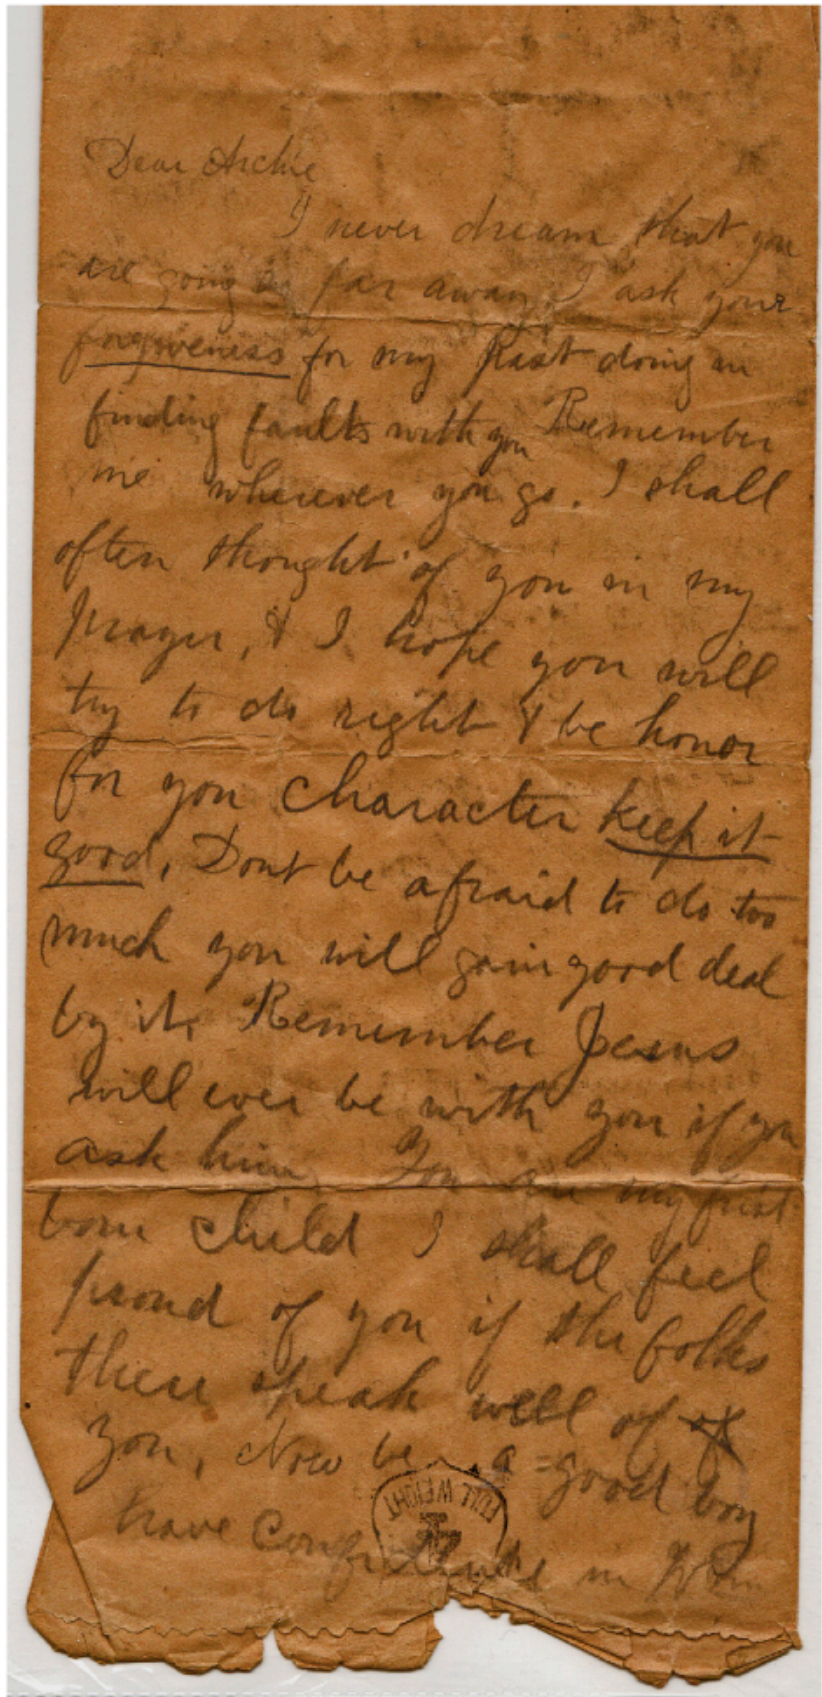 Dear Archie
I never dream that you
are going far away I ask your
forgiveness for my Past doing in
finding faults with you Remember
me wherever you go. I shall
often thought of you in my
prayer, & I hope you will
try to do right & be honor
for you character keep it
good, Dont be afraid to do too
much you will gain good deal
by it, Remember Jesus
will ever be with you if you
ask him You are my first
born child I shall feel
proud of you if the folks
there speak well of of
you, Now be a good boy
have in
FULL WEIGHT